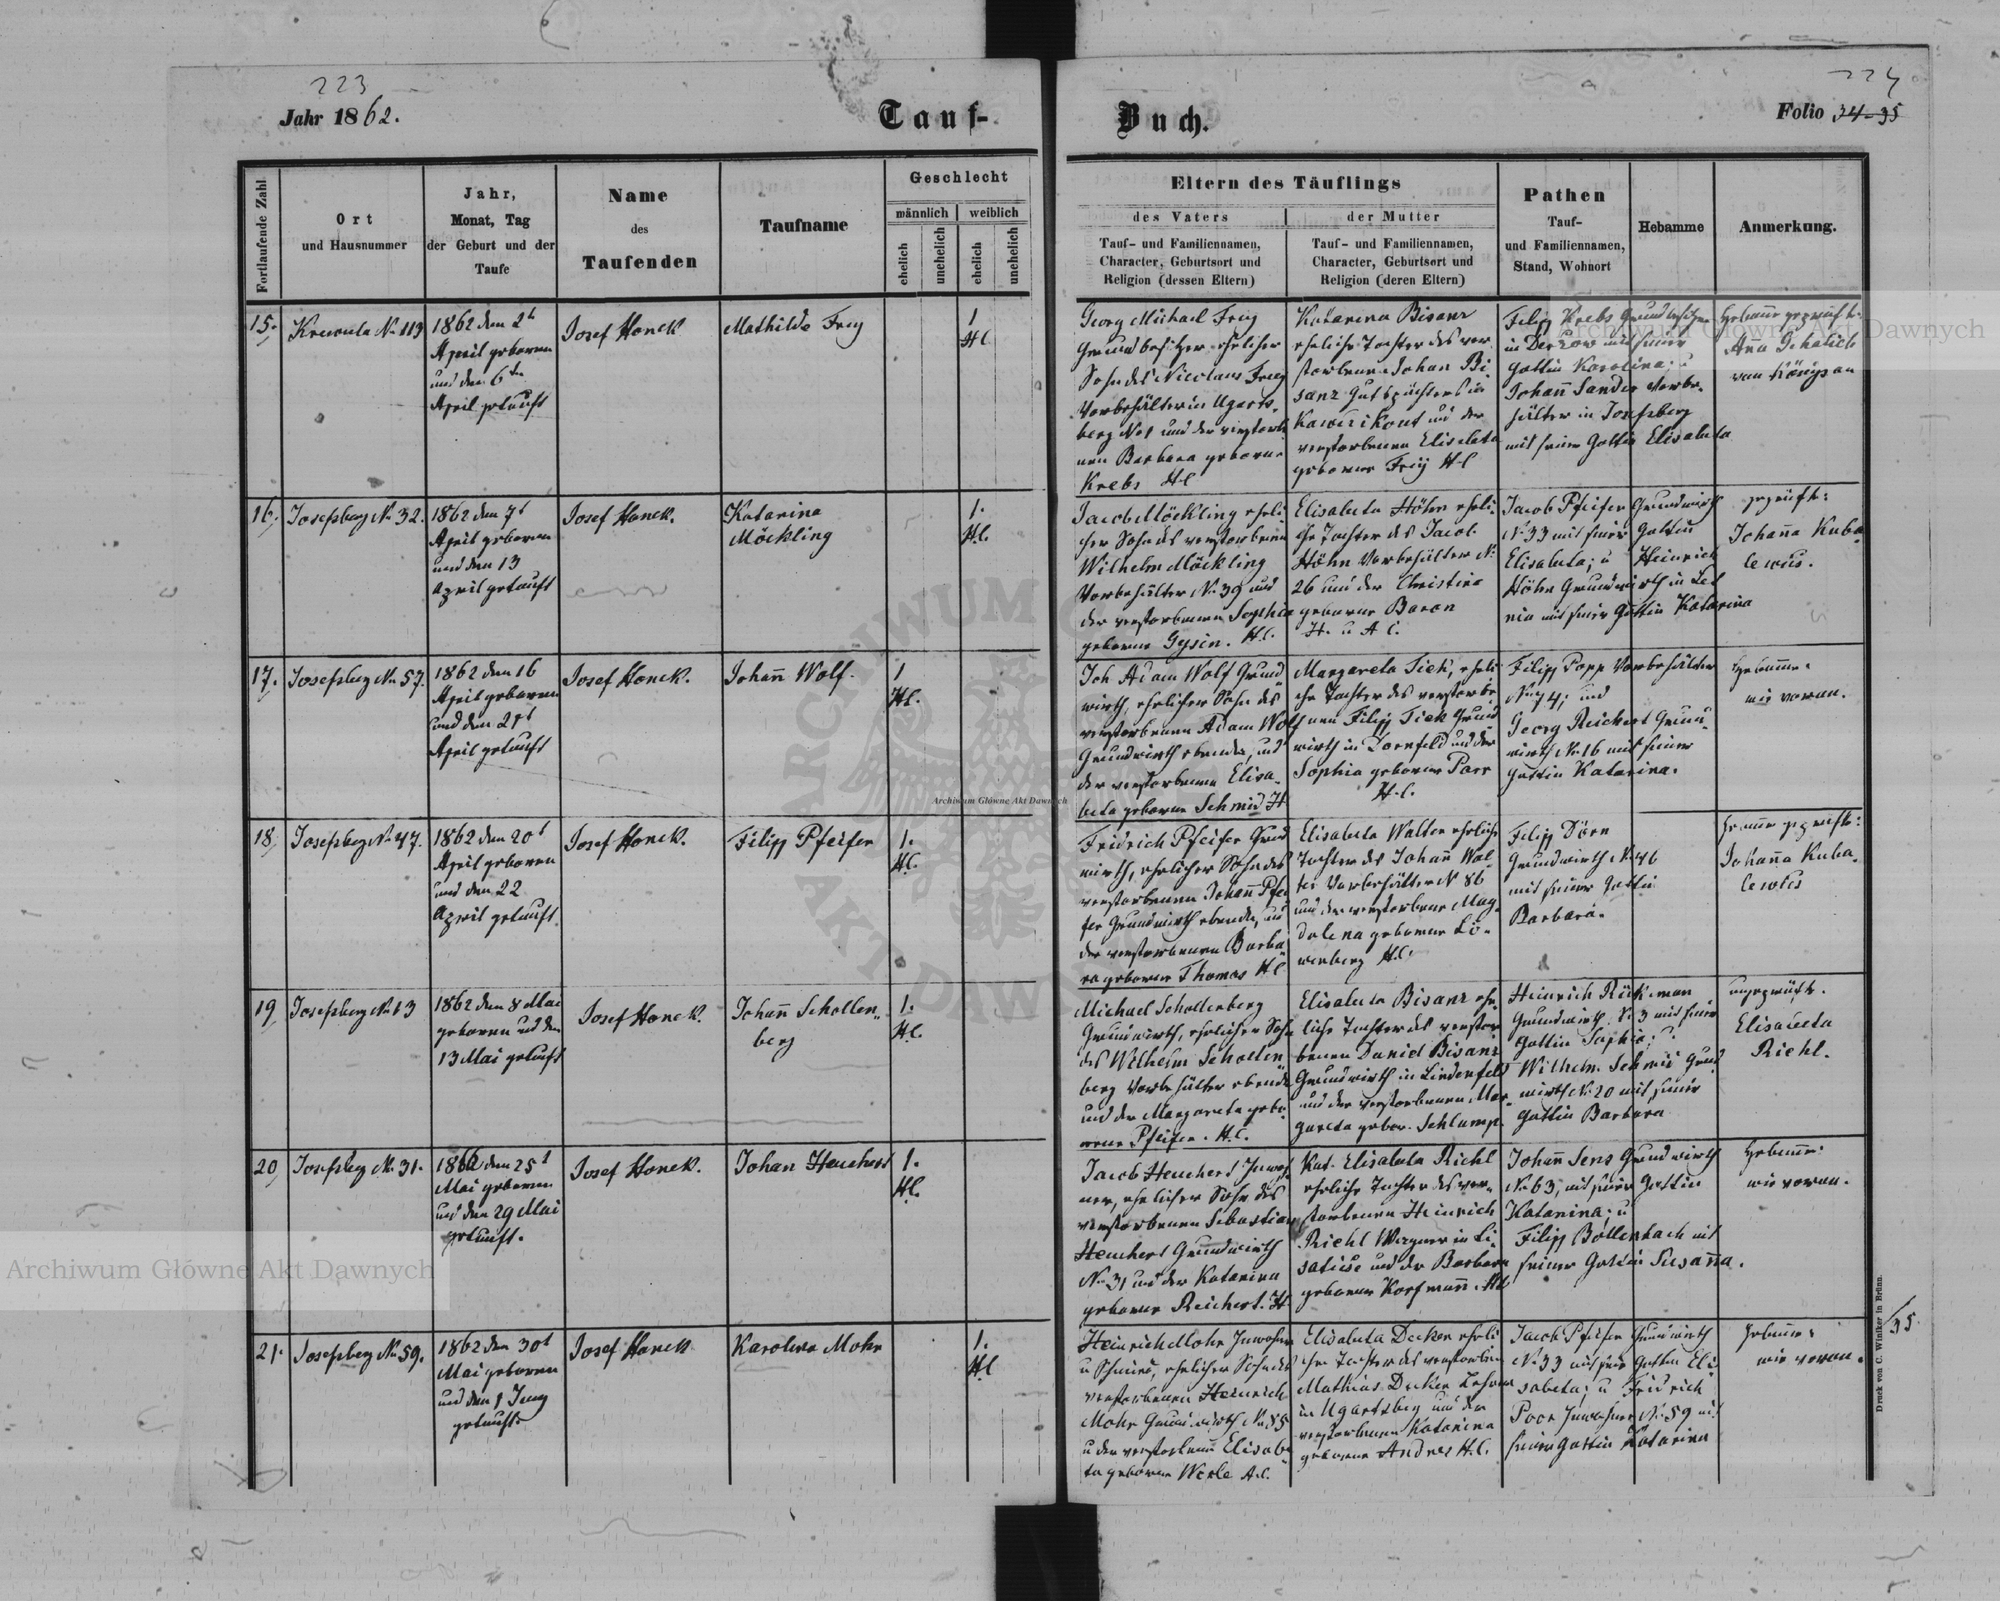 223
224
Jahr 1862.
Tauf-
Buch.
Folio 34-35
Fortlaufende Zahl
Ort
und Hausnummer
Jahr,
Monat, Tag
der Geburt und der
Taufe
Name
des
Taufenden
Taufname
Geschlecht
männlich
weiblich
ehelich
unehelich
ehelich
unehelich
Eltern des Täuflings
des Vaters
Tauf- und Familiennamen,
Character, Geburtsort und
Religion (dessen Eltern)
der Mutter
Tauf- und Familiennamen,
Character, Geburtsort und
Religion (deren Eltern)
Pathen
Tauf-
und Familiennamen,
Stand, Wohnort
Hebamme
Anmerkung.
15.
No 113
1862 den 2t
April geboren
und den 6ten
April getauft
Josef Honek
Mathilde Frey
1
H.C.
Georg Michael Frey
Grundbesitzer ehelicher
Sohn des Nicolaus Frey
Vorbehälter in Ugarts-
berg No 1 und der verstorbe
nen Barbara geborne
Krebs HC
Katarina Bisanz
eheliche Tochter des ver
storbenen Johan Bi
sanz Gutspächters in
und der
verstorbenen Elisabeta
geborner Frey H.C
Filipp Krebs Grundbesitzer
in mit seiner
Gattin Karolina; u
Johañ Sander Vorbe-
hälter in Josefsberg
mit seiner Gattin Elisabeta
Hebamme geprüft:
Añna
von Königsau
16.
Josefsberg No 32.
1862 den 7t
April geboren
und den 13
April getauft
Josef Honek.
Katarina
Möckling
1.
H.C.
Jacob Möckling eheli-
cher Sohn des verstorbenen
Wilhelm Möckling
Vorbehälter No 39 und
der verstorbenen Sophia
geborne Gysin. H.C.
Elisabeta Höhn eheli-
che Tochter des Jacob
Höhn Vorbehälter No
26 und der Christina
geborne Baron
H. u A C.
Jacob Pfeifer Grundwirth
No 33 mit seiner Gattin
Elisabeta; u Heinrich
Höhn Grundwirth in
mit seiner Gattin Katarina
geprüft:
Johañna Kuba
lewics.
17.
Josefsberg No 57.
1862 den 16
April geboren
und den 21t
April getauft
Josef Honek.
Johañ Wolf.
1
H.C.
Joh Adam Wolf Grund
wirth, ehelicher Sohn des
verstorbenen Adam Wolf
Grundwirth ebenda, und
der verstorbenen Elisa-
beta geborne Schmid H
Margareta Tiek, eheli
che Tochter des verstorbe
nen Filipp Tiek Grund
wirth in Dornfeld und der
Sophia geborne Parr
H.C.
Filipp Popp Vorbehälter
No 74; und
Georg Reichert Grund-
wirth No 16 mit seiner
Gattin Katarina.
Hebamme:
wie voran.
18.
Josefsberg No 47.
1862 den 20t
April geboren
und den 22
April getauft.
Josef Honek.
Filipp Pfeifer
1.
H.C.
Fridrich Pfeifer Grund
wirth, ehelicher Sohn des
verstorbenen Johañ Pfei
fer Grundwirth ebenda, und
der verstorbenen Barba
ra geborne Thomas H.C
Elisabeta Walter eheliche
Tochter des Johañ Wal-
ter Vorbehälter N 86
und der verstorbene Mag-
dalena geborne Lö-
wenberg H.C.
Filipp Dörn
Grundwirth No 46
mit seiner Gattin
Barbara.
Hebamme geprüft:
Johañna Kuba-
lewics
19.
Josefsberg No 13
1862 den 8 Mai
geboren und den
13 Mai getauft
Josef Honek.
Johañ Schollen-
berg
1.
H.C.
Michael Schollenberg
Grundwirth, ehelicher Sohn
des Wilhelm Schollen
berg Vorbehälter ebenda
und der Margareta gebo
rene Pfeifer. H.C.
Elisabeta Bisanz ehe
liche Tochter des verstor
benen Daniel Bisanz
Grundwirth in Lindenfeld
und der verstorbenen Mar-
gareta gebor. Schlamp.
Heinrich Rückeman
Grundwirth No 3 mit seiner
Gattin Sophia; u
Wilhelm Schmid Grund
wirth No 20 mit seiner
Gattin Barbara
ungeprüft.
Elisabeta
Riehl.
20.
Josefsberg No 31.
1862 den 25t
Mai geboren
und den 29 Mai
getauft.
Josef Honek.
Johan Heuchert
1.
H.C.
Jacob Heuchert Inwoh
ner, ehelicher Sohn des
verstorbenen Sebastian
Heuchert Grundwirth
No 31 und der Katarina
geborne Reichert. H
Kat. Elisabeta Riehl
eheliche Tochter des ver-
storbenen Heinrich
Riehl Wagner in Li-
und der Barbara
geborne Korfmann. H.C
Johañ Sens Grundwirth
No 63, mit seiner Gattin
Katarina; u
Filipp Bollenbach mit
seiner Gattin Susañna.
Hebamme:
wie voran.
21.
Josefsberg No 59.
1862 den 30t
Mai geboren
und den 1 Juny
getauft
Josef Honek
Karolina Mohr
1.
H.C
Heinrich Mohr Inwohner
u Schmied, ehelicher Sohn des
verstorbenen Heinrich
Mohr Grundwirth No 55
u der verstorbenen Elisabe
ta geborne Werle A.C.
Elisabeta Decker eheli
che Tochter des verstorbenen
Mathias Decker Lehrer
in Ugartsberg und der
verstorbenen Katarina
geborne Andres H.C.
Jacob Pfeifer Grundwirth
No 33 mit seiner Gattin Eli-
sabeta; u Fridrich
Poor Inwohner No 59 mit
seiner Gattin Katarina
Hebamme:
wie voran.
35.
Druck von C. Winiker in Brünn.
Archiwum Główne Akt Dawnych
Archiwum Główne Akt Dawnych
Archiwum Główne Akt Dawnych
ARCHIWUM
AKT DAWN